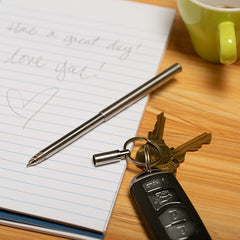 Have a great day!
love ya!!